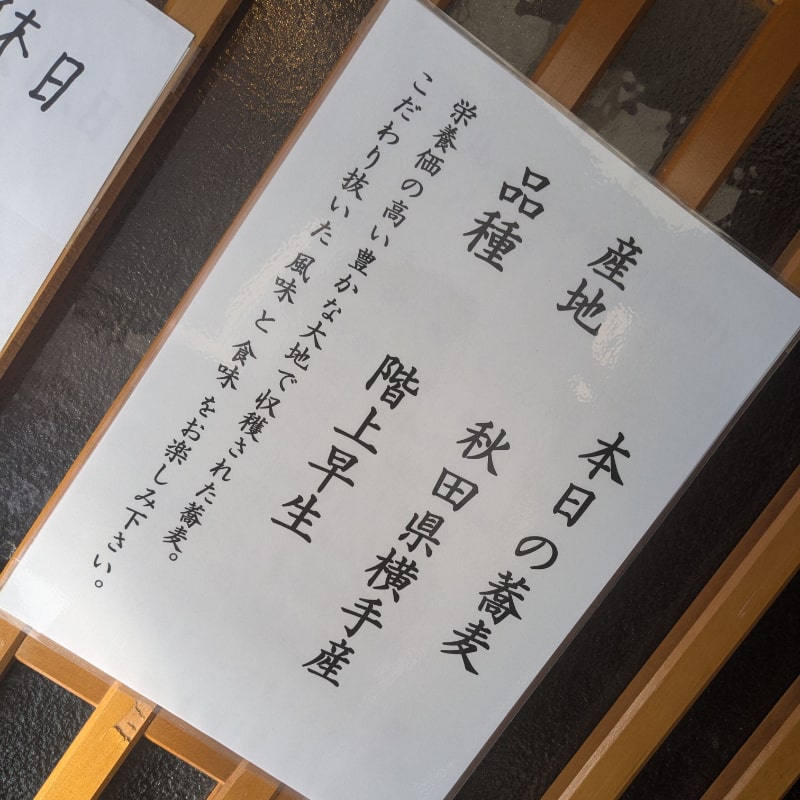 本日の蕎麦
産地 秋田県横手産
品種 階上早生
栄養価の高い豊かな大地で収穫された蕎麦。
こだわり抜いた風味と食味をお楽しみ下さい。
休日